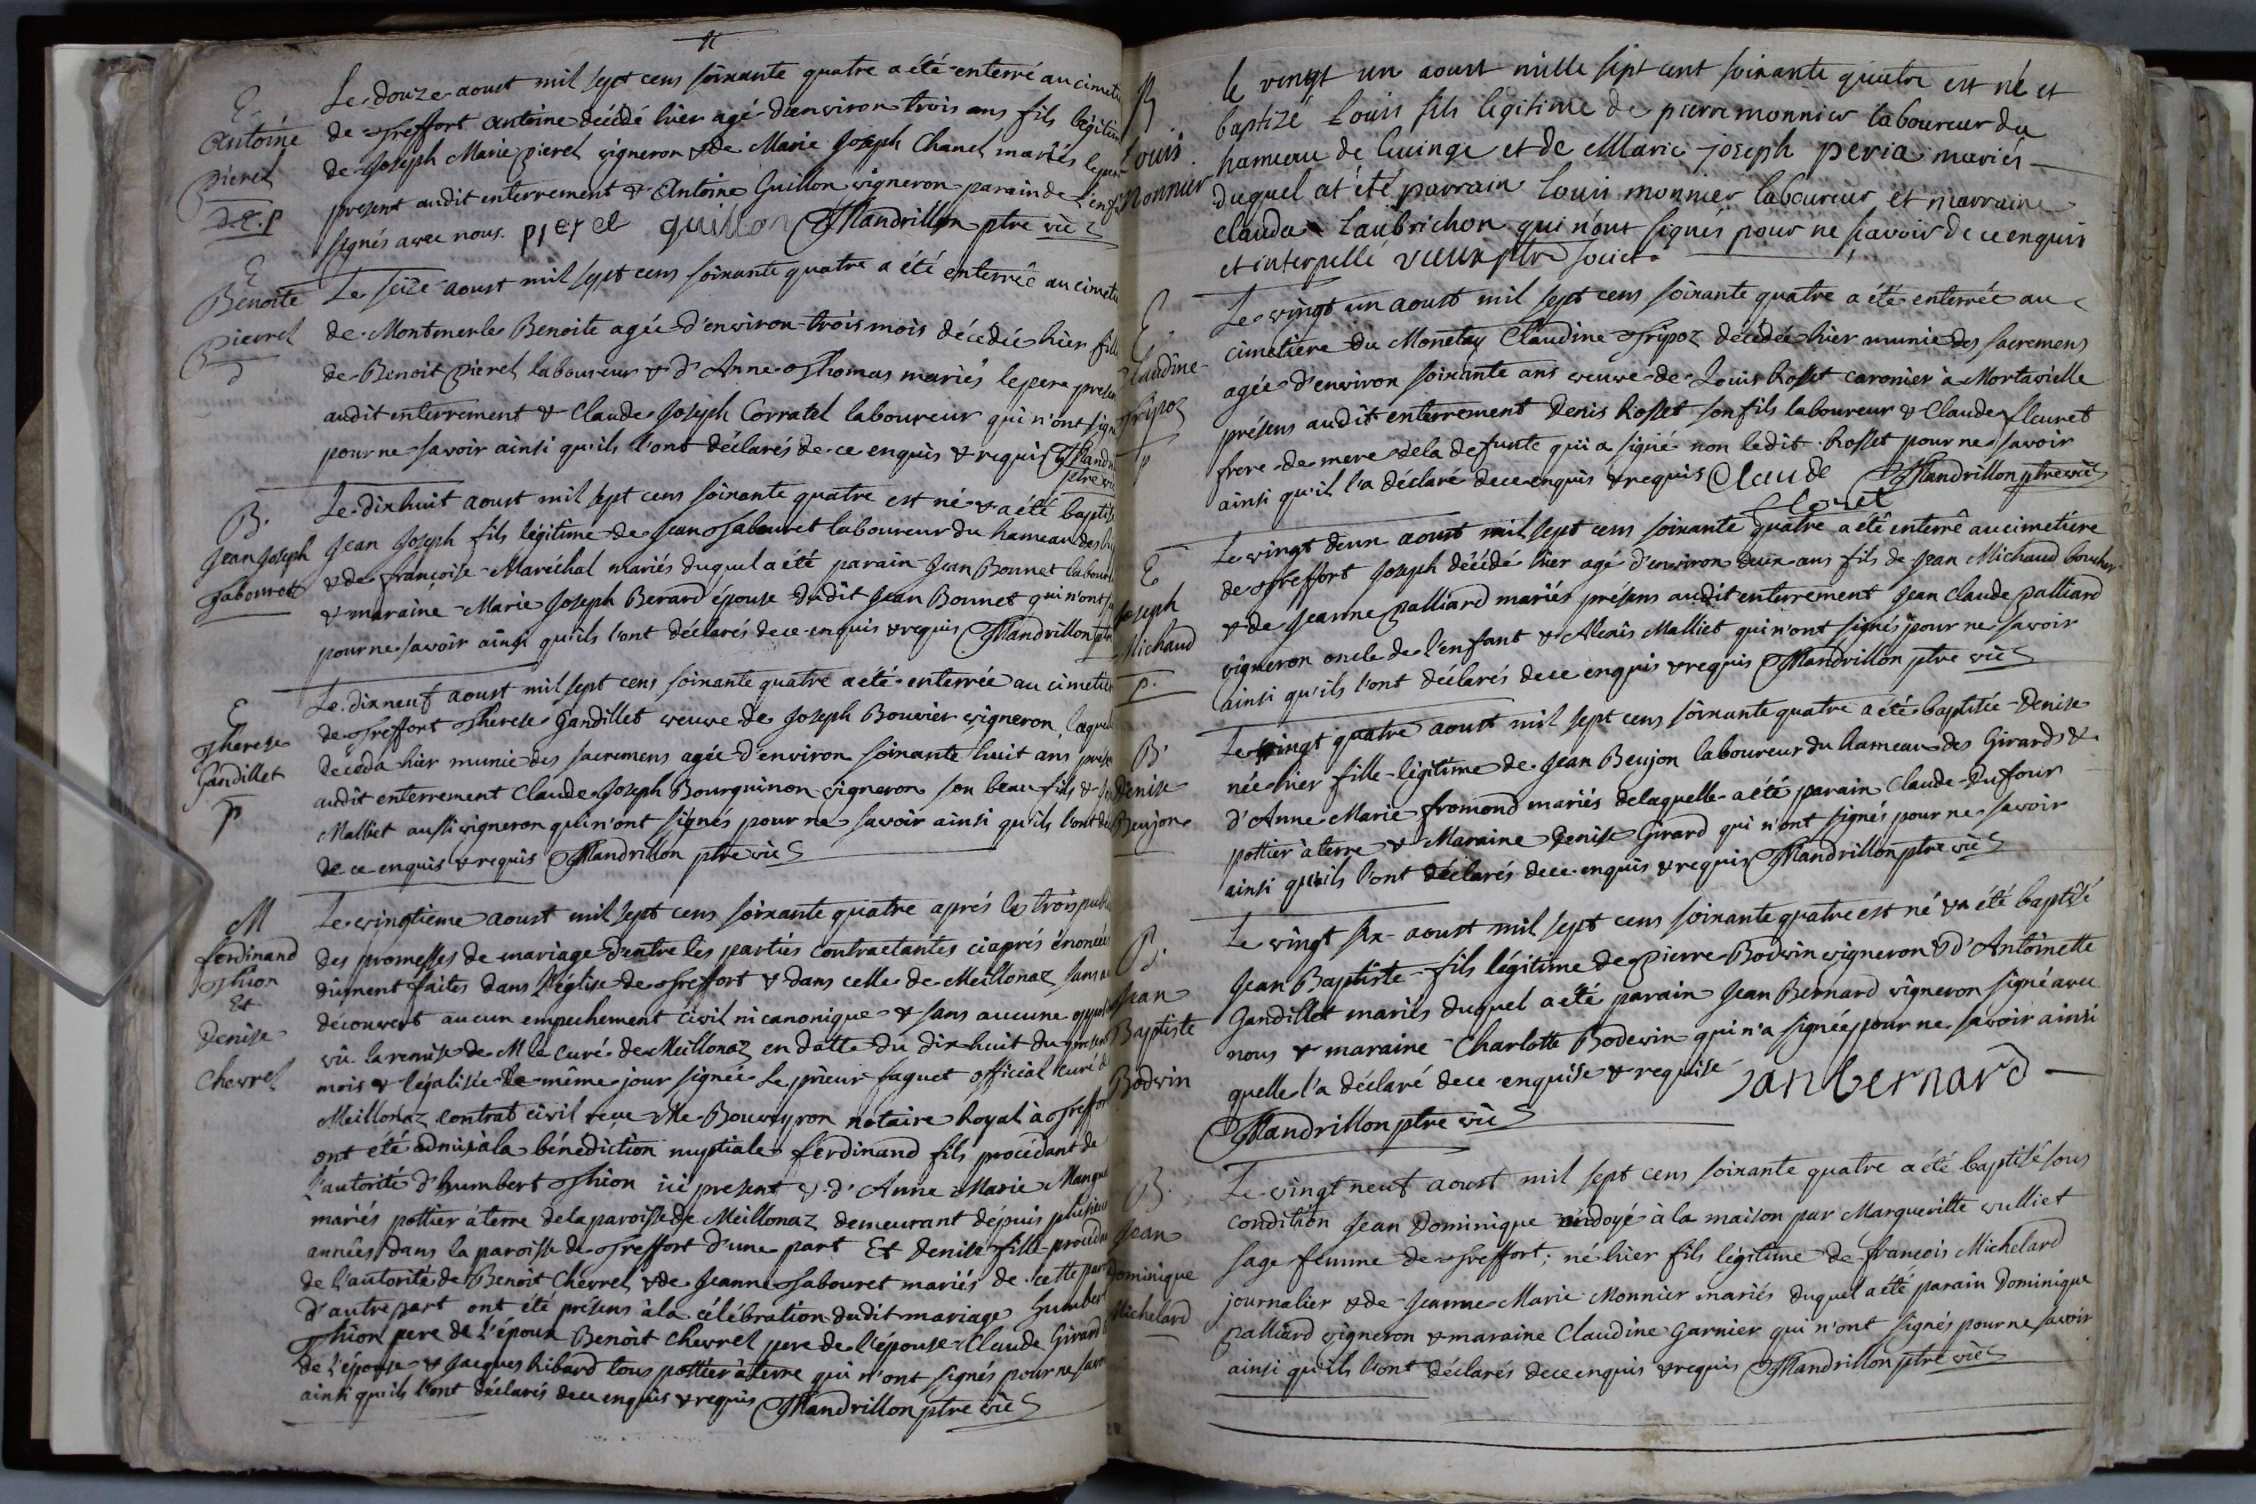 E
Antoine
Pierel
D.C.P
Le douze aoust mil sept cens soixante quatre a été enterré au cimeti
de Treffort Antoine décédé hier agé d'environ trois ans fils légitim
de Joseph Marie Pierel vigneron & de Marie Joseph Chanel mariés le per
present audit enterrement & Antoine Guillon vigneron parain de l'enfa
signés avec nous. pierel guillon Mandrillon ptre vic
E
Benoite
Pierrel
Le seize aoust mil sept cens soixante quatre a été enterrée au cimeti
de Montmerle Benoite agée d'environ trois mois décédée hier fille
de Benoit Pierel laboureur & d'Anne Thomas mariés le pere presen
audit enterrement & Claude Joseph Corratel laboureur qui n'ont signé
pour ne savoir ainsi qu'ils l'ont déclarés de ce enquis & requis Mandri
ptre vic
B.
Jean Joseph
Tabouret
Le dix huit aoust mil sept cens soixante quatre est né & a été baptisé
Jean Joseph fils légitime de Jean Tabouret laboureur du hameau des
& de françoise Maréchal mariés duquel a été parain Jean Bonnet labour
& maraine Marie Joseph Berard épouse dudit Jean Bonnet qui n'ont
pour ne savoir ainsi qu'ils l'ont déclarés de ce enquis & requis Mandrillon ptre
E
Therese
Gandillet
P
Le dix neuf aoust mil sept cens soixante quatre a été enterrée au cimetier
de Treffort Therese Gandillet veuve de Joseph Bouvier vigneron, laquel
déceda hier munie des sacremens agée d'environ soixante huit ans prése
audit enterrement Claude Joseph Bourguinon vigneron son beau fils &
Malliet aussi vigneron qui n'ont signés pour ne savoir ainsi qu'ils l'ont de
de ce enquis & requis Mandrillon ptre vic
M
ferdinand
Thion
Et
Denise
Chevrel
Le vingtieme aoust mil sept cens soixante quatre aprés les trois publi
des promesses de mariage d'entre les parties contractantes ci aprés énoncées
dûment faites dans l'église de Treffort & dans celle de Meillonaz sans av
découvert aucun empechement civil ni canonique & sans aucune oppo
vû la remise de M le Curé de Meillonaz en datte du dix huit du present
mois & légalisée le même jour signée Le prieur faguet official curé d
Meillonaz contrat civil reçu Me Bouveyron notaire Royal à Treffort
ont été admis à la bénédiction nuptiale ferdinand fils procédant de
l'autorité d'humbert Thion ici present & d'Anne Marie Mangue
mariés pottier à terre de la paroisse de Meillonaz demeurant dépuis plusieurs
années dans la paroisse de Treffort d'une part Et Denise fille procéda
de l'autorité de Benoit Chevrel & de Jeanne Tabouret mariés de cette par
d'autre part ont été présens à la célébration dudit mariage humbert
Thion pere de l'époux Benoit Chevrel pere de l'épouse Claude Girard
de l'épouse & Jacques Ribard tous pottier à terre qui n'ont signés pour ne savoi
ainsi qu'ils l'ont déclarés de ce enquis & requis Mandrillon ptre vic
B
Louis
Monnier
le vingt un aoust mille sept cent soixante quatre est né et
baptizé Louis fils legitime de pierre monnier laboureur du
hameau de Cuinge et de Marie joseph peria mariés
duquel at été parrain Louis monnier laboureur et marraine
clauda Laubrichon qui n'out signés pour ne sçavoir de ce enquis
et interpellé vieux ptre societ.
E
Claudine
Tripoz
P
Le vingt un aoust mil sept cens soixante quatre a été enterrée au
cimetiere du Monetay Claudine Tripoz décédée hier munie des sacremens
agée d'environ soixante ans veuve de Louis Rosset caronier à Mortavielle
présens audit enterrement Denis Rosset son fils laboureur & Claude fleuret
frere de mere de la defunte qui a signé non ledit Rosset pour ne savoir
ainsi qu'il l'a déclaré de ce enquis & requis Claude Mandrillon ptre vic
floret
E
Joseph
Michaud
P.
Le vingt deux aoust mil sept cens soixante quatre a été enterré au cimetiere
de Treffort Joseph décédé hier agé d'environ deux ans fils de Jean Michaud boucher
& de Jeanne Palliard mariés présens audit enterrement Jean Claude Palliard
vigneron oncle de l'enfant & Alexis Malliet qui n'ont signés pour ne savoir
ainsi qu'ils l'ont déclarés de ce enquis & requis Mandrillon ptre vic
B.
Denise
Beujon
Le vingt quatre aoust mil sept cens soixante quatre a été baptisée Denise
née hier fille légitime de Jean Beujon laboureur du hameau des Girards &
d'Anne Marie fromond mariés de laquelle a été parain Claude Duffour
pottier à terre & Maraine Denise Girard qui n'ont signés pour ne savoir
ainsi qu'ils l'ont déclarés de ce enquis & requis Mandrillon ptre vic
B.
Jean
Baptiste
Bodwin
Le vingt six aoust mil sept cens soixante quatre est né & a été baptisé
Jean Baptiste fils légitime de Pierre Bodwin vigneron & d'Antoinette
Gandillet mariés duquel a été parain Jean Bernard vigneron signé avec
nous & maraine Charlotte Bodewin qui n'a signée pour ne savoir ainsi
quelle l'a déclaré de ce enquise & requise Janbernard
Mandrillon ptre vic
B.
Jean
Dominique
Michelard
Le vingt neuf aoust mil sept cens soixante quatre a été baptisé sous
condition Jean Dominique ondoyé à la maison par Marguerite vulliet
sage femme de Treffort; né hier fils légitime de françois Michelard
journalier & de Jeanne Marie Monnier mariés duquel a été parain Dominique
Palliard vigneron & maraine Claudine Garnier qui n'ont signés pour ne savoir
ainsi qu'ils l'ont déclarés de ce enquis & requis Mandrillon ptre vic